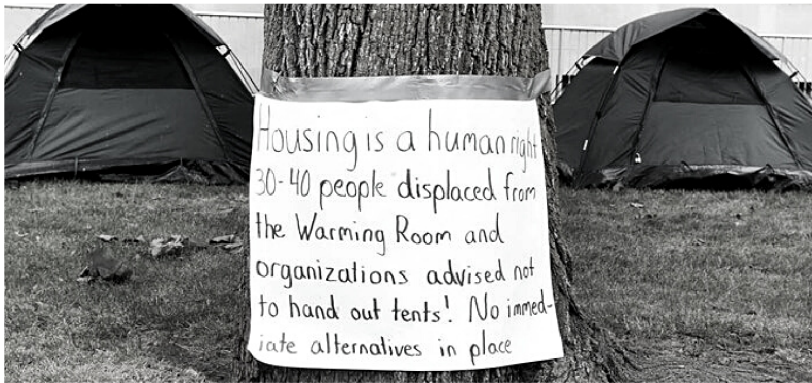 Housing is a human right
30-40 people displaced from
the Warming Room and
organizations advised not
to hand out tents! No immed-
iate alternatives in place